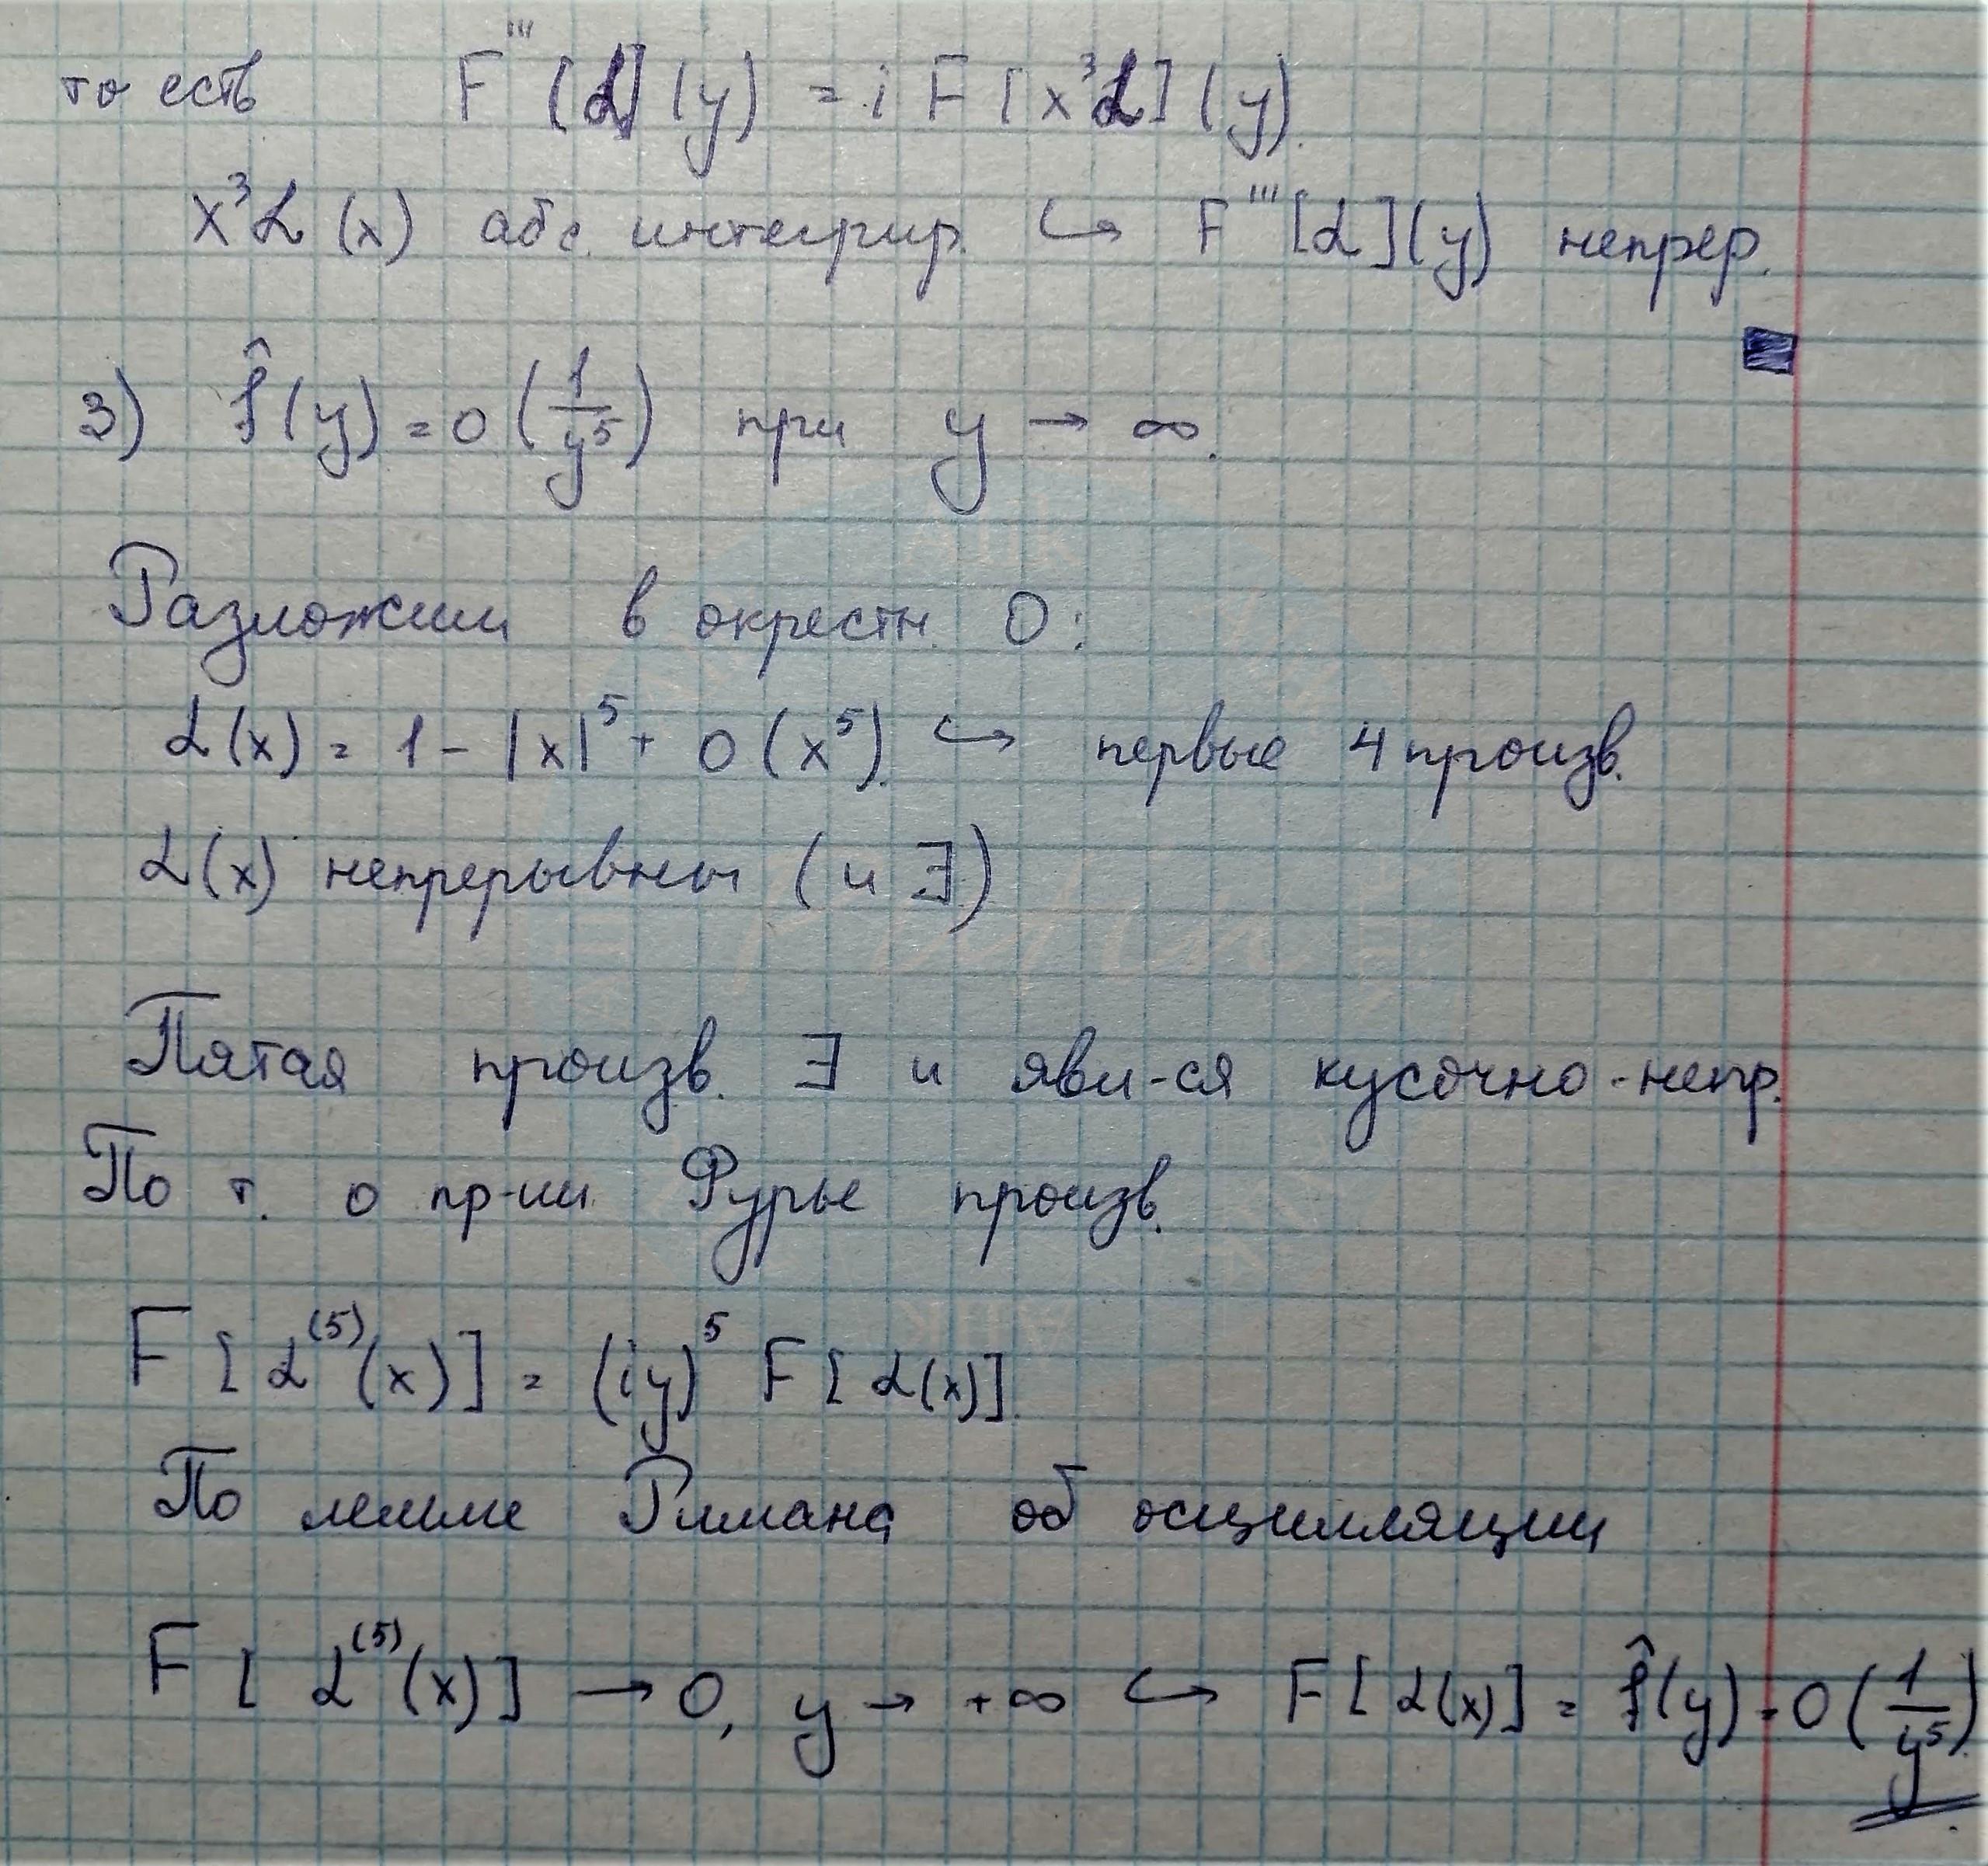 то есть F'''[α](y) = i F[x³α](y).
x³α(x) абс. интегрир. ↪ F'''[α](y) непрер.
3) f̂(y) = o(1/y⁵) при y → ∞.
Разложим в окрестн. 0:
α(x) = 1 - |x|⁵ + o(x⁵) ↪ первые 4 произв.
α(x) непрерывны (и ∃)
Пятая произв. ∃ и явл-ся кусочно-непр.
По т. о пр-ии Фурье произв.
F[α⁽⁵⁾(x)] = (iy)⁵ F[α(x)].
По лемме Римана об осцилляции
F[α⁽⁵⁾(x)] → 0, y → +∞ ↪ F[α(x)] = f̂(y) = o(1/y⁵).